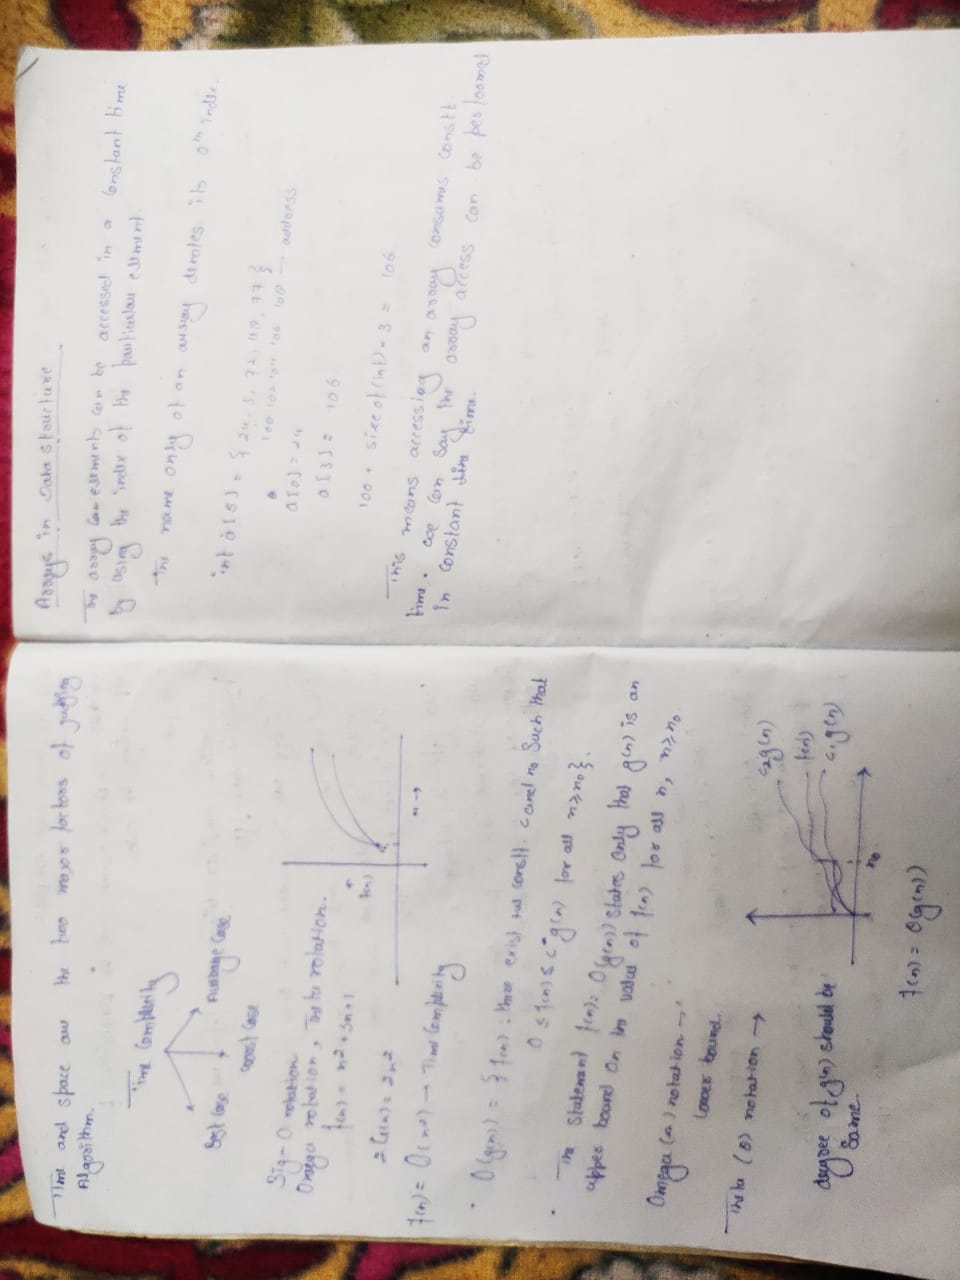 Time and space are the two major factors of judging
Algorithm.
Time Complexity
Best Case
Average Case
worst Case
Big-O notation
Omega notation, theta notation.
f(n) = n² + 3n + 1
f(n)
n →
f(n) = O(n²) → Time Complexity
• O(g(n)) = { f(n) : there exist +ve constt. c and n₀ Such that
0 ≤ f(n) ≤ c*g(n) for all n ≥ n₀ }.
• The Statement f(n) = O(g(n)) states Only that g(n) is an
upper bound On the value of f(n) for all n, n ≥ n₀
Omega notation →
Lower bound.
Theta (θ) notation →
c₂g(n)
f(n)
c₁g(n)
n₀
degree of g(n) should be
same.
f(n) = θ(g(n))
Arrays in Data structure
The array elements can be accessed in a Constant time
by using the index of the particular element.
The name only of an array denotes its 0th index.
int a[5] = { 24, 3, 72, 48, 77 }
100 102 104 106 108 — address
a[0] = 24
a[3] = 106
100 + size of (int) * 3 = 106
This means accessing an array consumes constt
time. we can say the array access can be performed
in constant time.